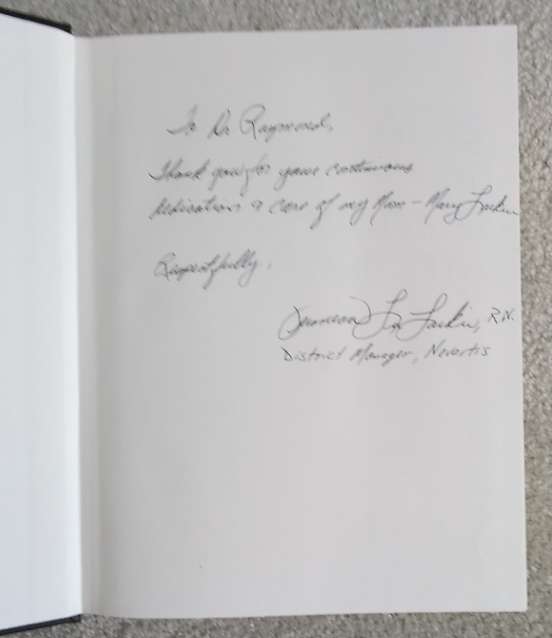 To Dr Raymond,
Thank you for your continuous
dedication & care of my Mom - Mary Larkin
Respectfully,
Larkin, R.N.
District Manager, Novartis